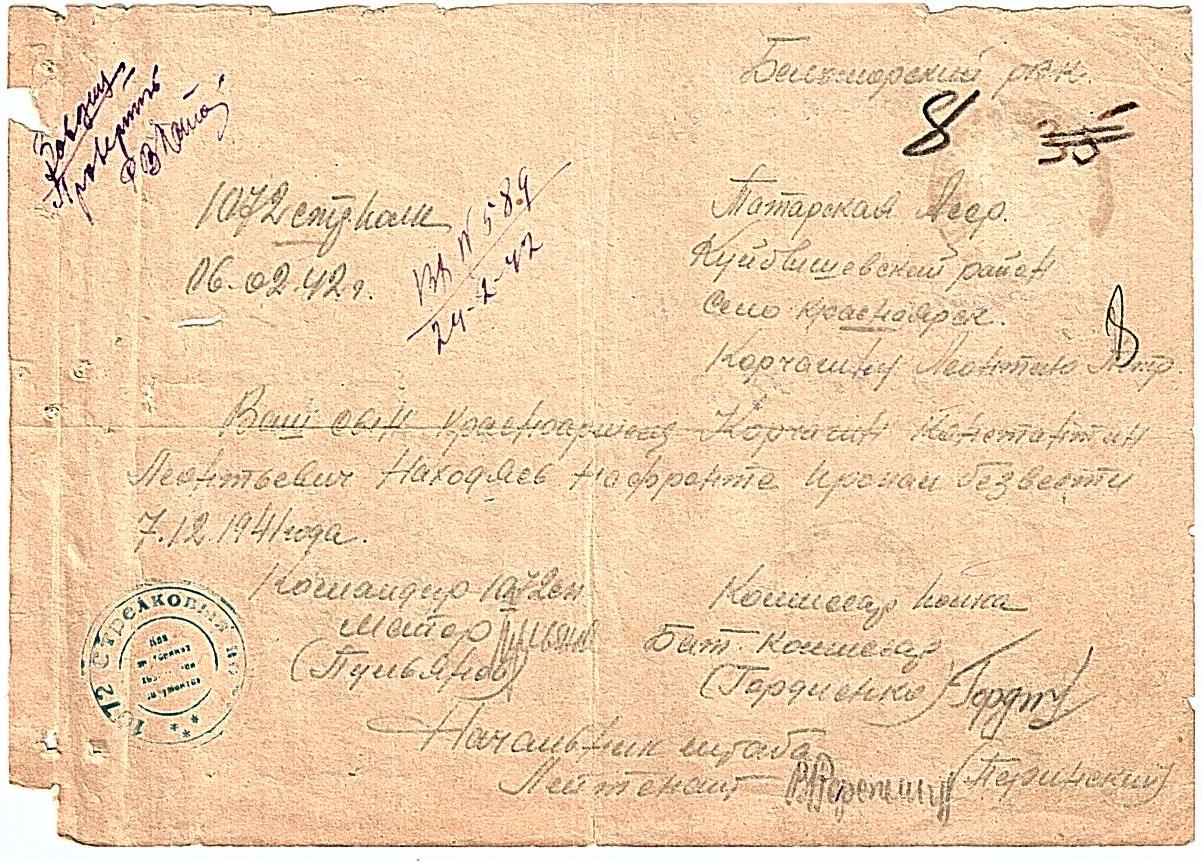 рвк.
8
Проверить
1072 стр. полк
06.02.42 г.
ВХ N 589
24-2-42
Татарская Асср.
Куйбышевский район
село красноярск.
Корчагину Леонтию Петр.
Ваш сын красноармеец Корчагин Константин
Леонтьевич находясь на фронте пропал безвести
7.12.1941 года.
Командир 1072 сп
майор
(Пульянов)
Комиссар полка
Бат. комиссар
(Гордиенко)
Начальник штаба
Лейтенант
(Перинский)
1072 СТРЕЛКОВЫЙ
Для
8